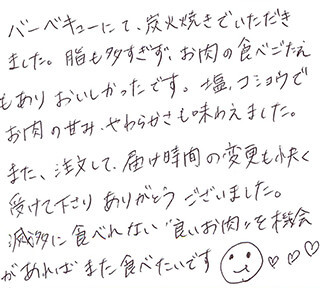 バーベキューにて、炭火焼きでいただき
ました。脂も多すぎず、お肉の食べごたえ
もありおいしかったです。塩、コショウで
お肉の甘み、やわらかさも味わえました。
また、注文して、届け時間の変更も快く
受けて下さりありがとうございました。
滅多に食べれない“良いお肉”を機会
があればまた食べたいです